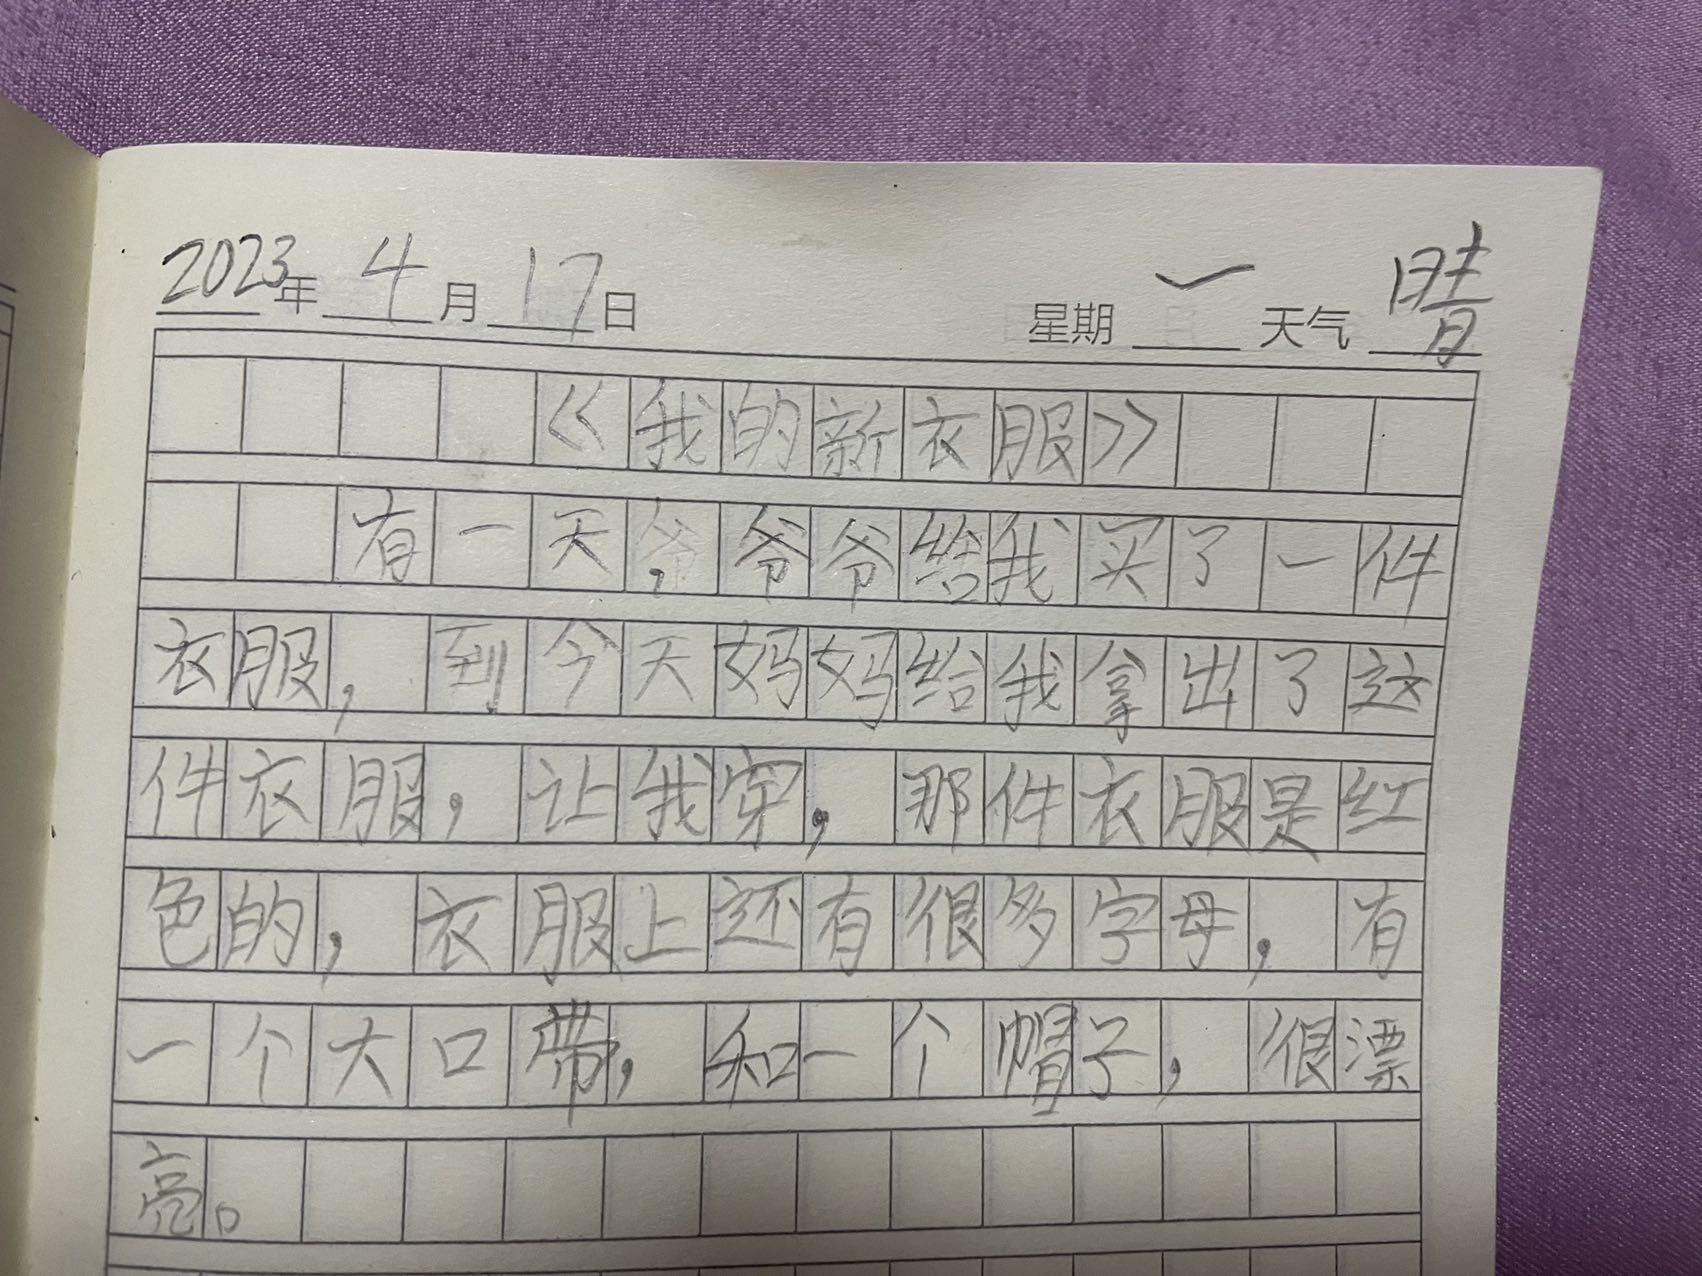 2023年 4月 17日 星期 一 天气 晴
《我的新衣服》
有一天,爷爷给我买了一件
衣服,到今天妈妈给我拿出了这
件衣服,让我穿,那件衣服是红
色的,衣服上还有很多字母,有
一个大口带,和一个帽子,很漂
亮。